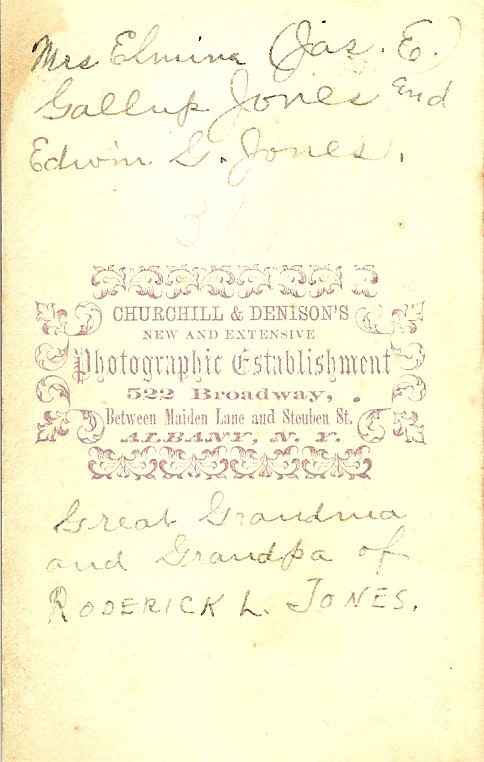 Mrs Elmina (Jas. E.)
Gallup Jones and
Edwin G. Jones.
CHURCHILL & DENISON'S
NEW AND EXTENSIVE
Photographic Establishment
522 Broadway,
Between Maiden Lane and Steuben St.
ALBANY, N. Y.
Great Grandma
and Grandpa of
RODERICK L. JONES.